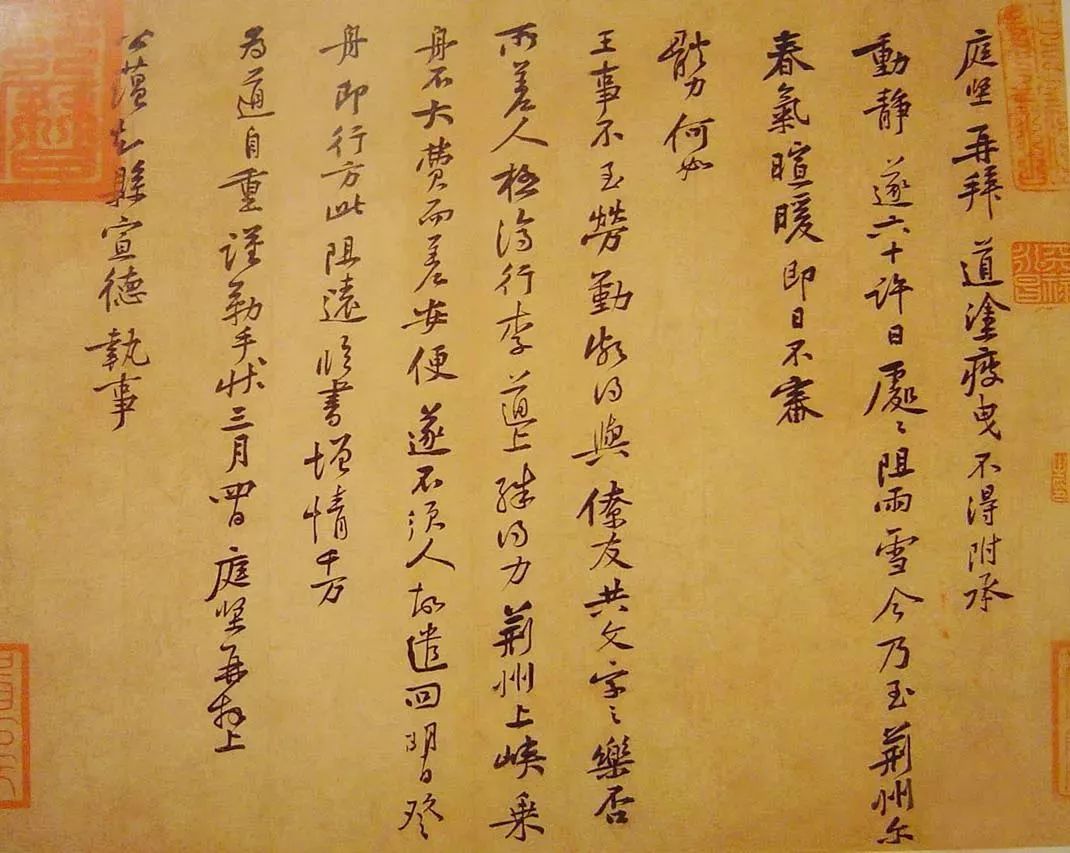 庭堅再拜 道塗疲曳不得附承
動靜 遂六十許日處〻阻雨雪今乃至荊州尔
春氣暄暖即日不審
體力何如
王事不至勞勤頗得與僚友共文字之樂否
所差人極濟行李 上殊得力荊州上峽乘
舟不大費而差安便遂不須人故遣回明日登
舟即行方此阻遠臨書增情千万
為道自重謹勒手狀三月四日庭堅再拜上
公蘊知縣宣德執事